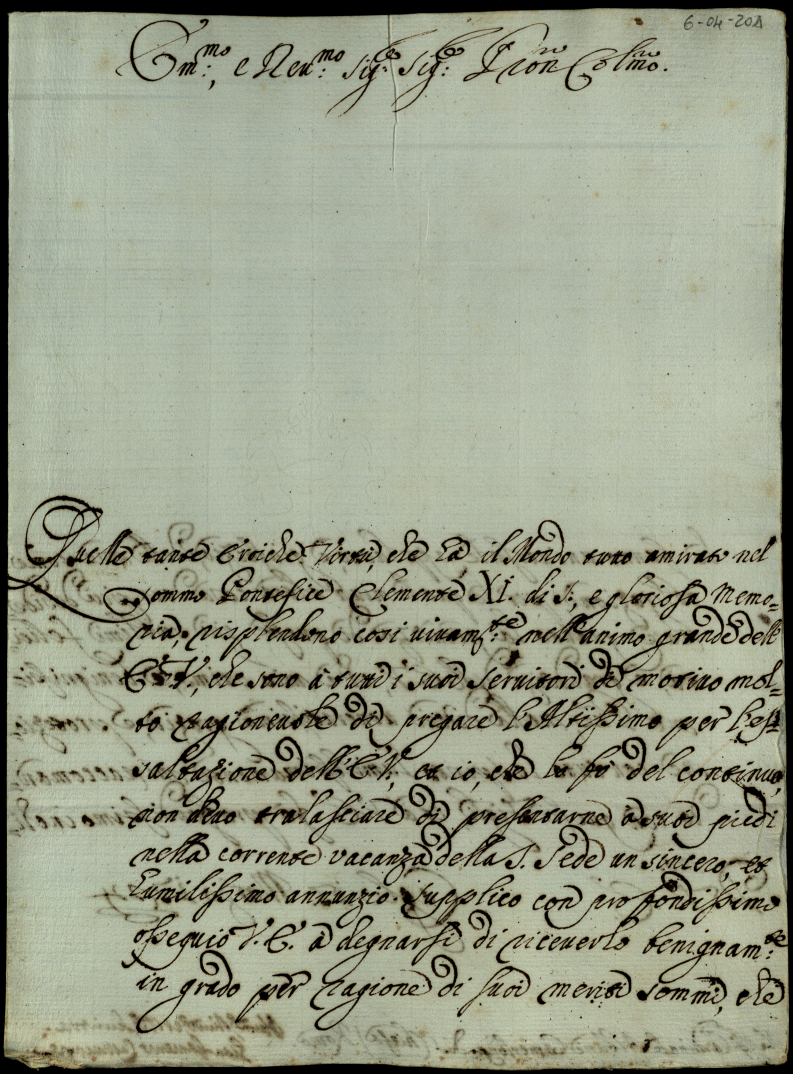 6-04-201
Em:mo, e Reu:mo Sig:e Sig:e Pron Colmo.
Quelle tante Eroiche Vertù, che hà il Mondo tutto amirate nel
Sommo Pontefice Clemente XI. di S:, e gloriosa Memo=
ria, risplendono così viuam:te nell'animo grande dell'
E. V., che sono à tutti i suoi seruitori di motiuo mol=
to ragioneuole di pregare l'Altissimo per l'es=
saltazione dell'E. V., et io, che lo fò del continuo,
non deuo tralasciare di presentarne à suoi piedi
nella corrente vacanza della S. Sede un sincero, et
humilissimo annunzio. Supplico con profondissimo
osseguio V. E. à degnarsi di riceuerlo benignam:te
in grado per ragione di suoi meriti sommi, che